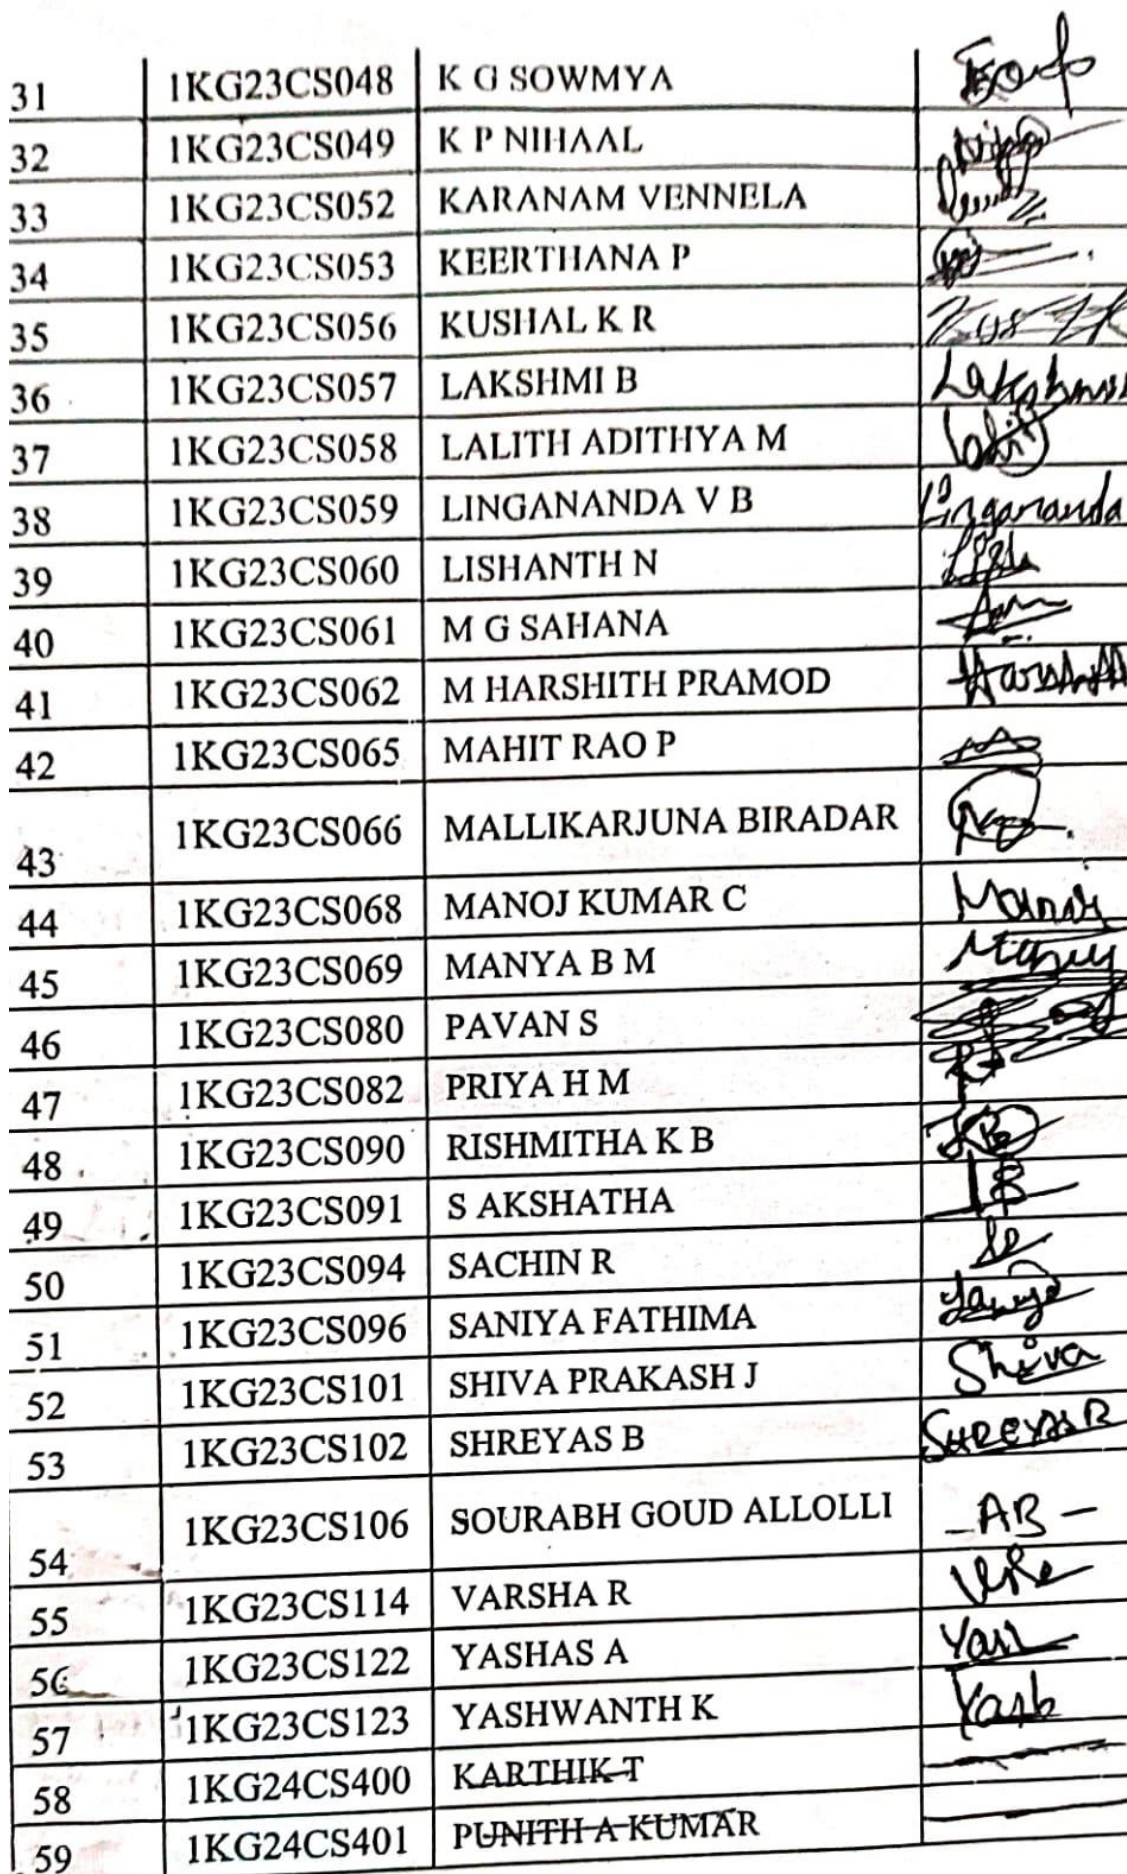 31 1KG23CS048 K G SOWMYA
32 1KG23CS049 K P NIHAAL
33 1KG23CS052 KARANAM VENNELA
34 1KG23CS053 KEERTHANA P
35 1KG23CS056 KUSHAL K R
36 1KG23CS057 LAKSHMI B Lakshmi
37 1KG23CS058 LALITH ADITHYA M
38 1KG23CS059 LINGANANDA V B Lingananda
39 1KG23CS060 LISHANTH N
40 1KG23CS061 M G SAHANA
41 1KG23CS062 M HARSHITH PRAMOD
42 1KG23CS065 MAHIT RAO P
43 1KG23CS066 MALLIKARJUNA BIRADAR
44 1KG23CS068 MANOJ KUMAR C Manoj
45 1KG23CS069 MANYA B M
46 1KG23CS080 PAVAN S
47 1KG23CS082 PRIYA H M
48 1KG23CS090 RISHMITHA K B
49 1KG23CS091 S AKSHATHA
50 1KG23CS094 SACHIN R
51 1KG23CS096 SANIYA FATHIMA
52 1KG23CS101 SHIVA PRAKASH J Shiva
53 1KG23CS102 SHREYAS B SHREYAS B
54 1KG23CS106 SOURABH GOUD ALLOLLI -AB-
55 1KG23CS114 VARSHA R
56 1KG23CS122 YASHAS A
57 1KG23CS123 YASHWANTH K Yash
58 1KG24CS400 KARTHIK T
59 1KG24CS401 PUNITH A KUMAR